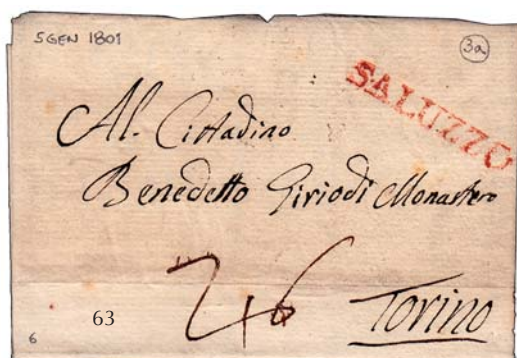 5 GEN 1801
3a
SALUZZO
Al. Cittadino
Benedetto Giriodi Monastero
26
Torino
63
6